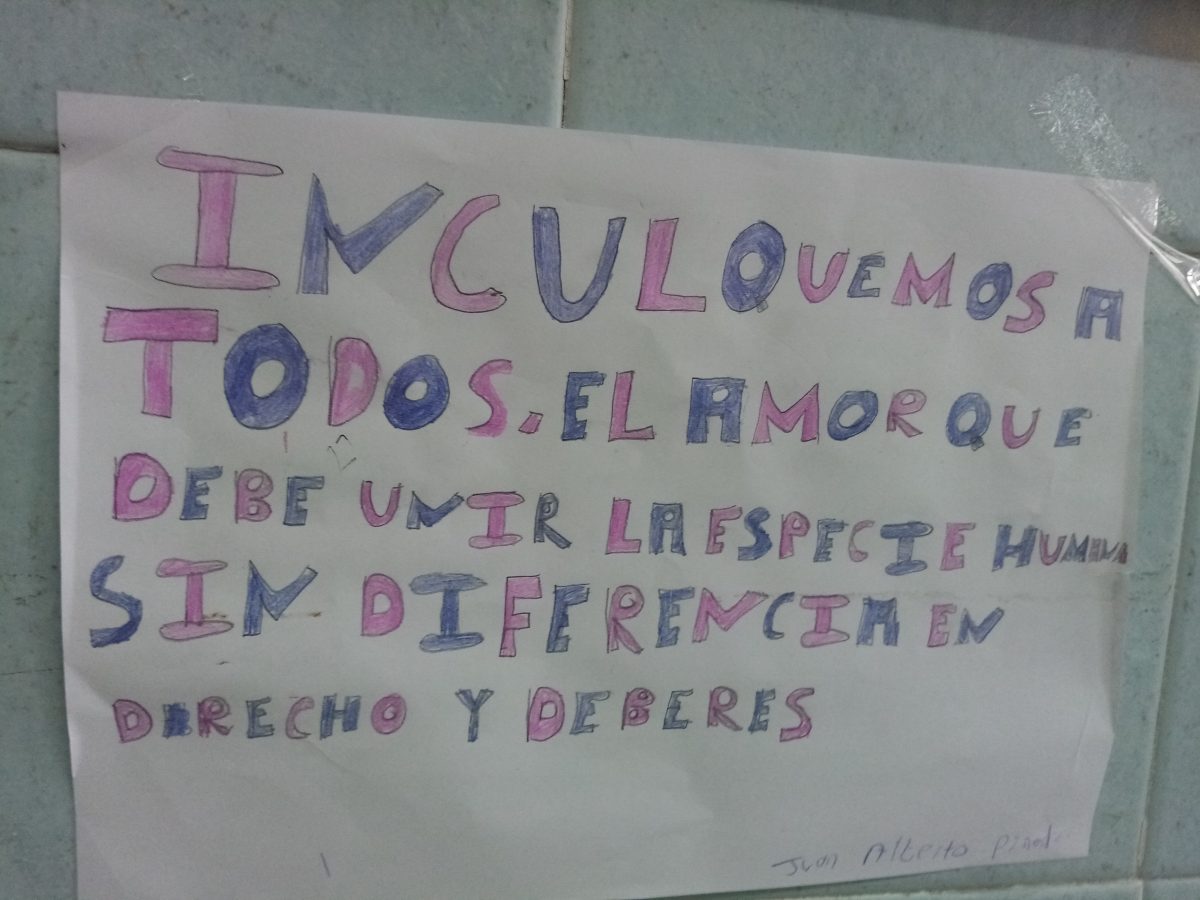 INCULQUEMOS A
TODOS. EL AMOR QUE
DEBE UNIR LA ESPECIE HUMANA
SIN DIFERENCIA EN
DERECHO Y DEBERES
Juan Alberto